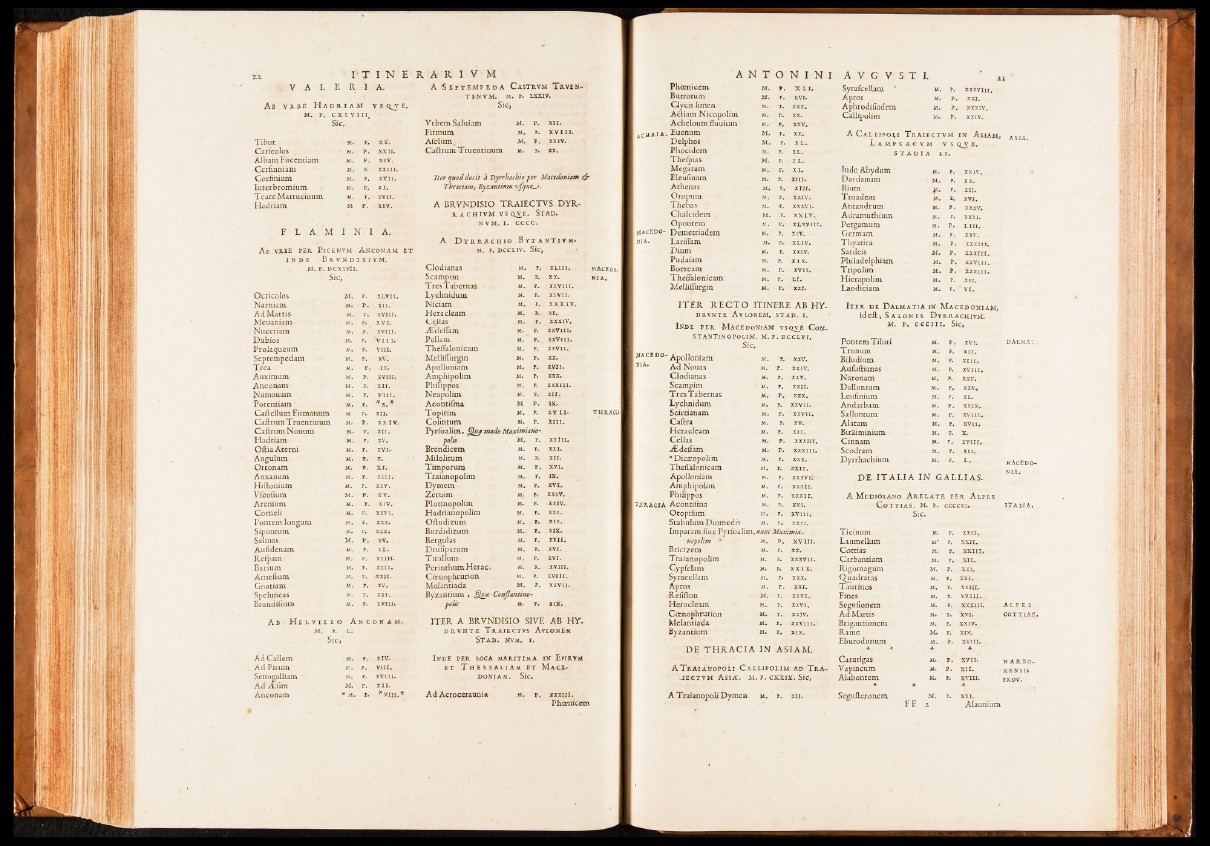 22
ITINERARIVM
VALERIA.
AB VRBE HADRIAM VSQVE,
M. P. CXLVIII.
Sic,
Tibur. M. P. XX.
Carieolos M. P. XXII.
Albam Fucentiam M. P. XXV.
Cerfinniam M. P. XXIII.
Corfinium M. P. XVII.
Interbromium M. P. XI.
Teate Marrucinum M. P. XVII.
Hadriam M. P. XIV.
FLAMINIA.
AB VRBE PER PICENVM ANCONAM ET
INDE BRVNDISIVM.
M. P. DCXIVII.
Sic,
Ocricolos M. P. XLVII.
Narniam M. P. XII.
Ad Martis M. P. XVIII.
Meuaniam M. P. XVI.
Nuceriam M. P. XVIII.
Dubios M. P. VIII.
Prolaqueum M. P. VIII.
Septempedam M. P. XV.
Trea M. P. IX.
Auximum M. P. XVIII.
Anconam M. P. XII.
Numanam M. P. VIII.
Potentiam M. P. * X. *
Castellum Firmanum M. P. XII.
Castrum Truentinum M. P. XXIV.
Castrum Nouum M. P. XII.
Hadriam M. P. XV.
Ostia Aterni M. P. XVI.
Angulum M. P. X.
Ortonam M. P. XI.
Anxanum M. P. XIII.
Histonium M. P. XXV.
Vscosium M. P. XV.
Arenium M. P. XIV.
Corneli M. P. XXVI.
Fontem longum M. P. XXX.
Sipuntum M. P. XXX.
Salinas M. P. XV.
Aufidenam M. P. XL.
Respam M. P. XXIII.
Barium M. P. XIII.
Arnestum M. P. XXII.
Gnatiam M. P. XV.
Speluncas M. P. XXI.
Brundisium M. P. XVIII.
AB HELVILLO ANCONAM.
M. P. L.
Sic,
Ad Callem M. P. XIV.
Ad Pirum M. P. VIII.
Senogalliam M. P. XVIII.
Ad Æsim M. P. XII.
Anconam * M. P. * VIII. *
A SEPTEMPEDA CASTRVM TRVEN-
TINVM. M. P. LXXIV.
Sic,
Vrbem Saluiam M. P. XII.
Firmum M. P. XVIII.
Asclum M. P. XXIV.
Castrum Truentinum M. P. XX.
Iter quod ducit à Dyrrhachio per Macedoniam &
Thraciam, Byzantium vsque.
A BRVNDISIO TRAIECTVS DYR-
RACHIVM VSQVE. STAD.
NVM. I. CCCC.
A DYRRACHIO BYZANTIVM.
M. P. DCCLIV. Sic,
Clodianas M. P. XLIII. MACEDO-
Scampim M. P. XX. NIA.
Tres Tabernas M. P. XXVIII.
Lychnidum M. P. XXVII.
Niciam M. P. XXXIV.
Heracleam M. P. XI.
Cellas M. P. XXXIV.
Ædessam M. P. XXVIII.
Pellam M. P. XXVIII.
Thessalonicam M. P. XXVII.
Mellissurgin M. P. XX.
Apolloniam M. P. XVII.
Amphipolim M. P. XXX.
Philippos M. P. XXXIII.
Neapolim M. P. XII.
Acontisma M. P. IX.
Topirim M. P. XVII. THRACIA
Colintum M. P. XIII.
Pyrsoalim, Quæ modo Maximiano-
polis M. P. XXIII.
Brendicem M. P. XXI.
Milolitum M. P. XII.
Timporum M. P. XVI.
Traianopolim M. P. IX.
Dymem M. P. XVI.
Zeruim M. P. XXIV.
Plotinopolim M. P. XXIV.
Hadrianopolim M. P. XXI.
Ostudizum M. P. XIX.
Burdidizum M. P. XIX.
Bergulas M. P. XVII.
Drusiparum M. P. XVI.
Tirallum M. P. XVI.
Perinthum, Herac. M. P. XVIII.
Cœnophrurion M. P. XVIII.
Melantiada M. P. XXVII.
Byzantium, Quæ Constantino-
polis M. P. XIX.
ITER A BRVNDISIO SIVE AB HY-
DRVNTE TRAIECTVS AVLONEM
STAD. NVM. I.
INDE PER LOCA MARITIMA IN EPIRVM
ET THESSALIAM ET MACE-
DONIAM. Sic.
Ad Acroceraunia M. P. XXXIII.
Phœnicem
ANTONINI AVGVSTI. 23
Phœnicem M. P. XLI.
Butrotum M. P. LVI.
Glycin limen M. P. XXX.
Actiam Nicopolim M. P. XX.
Acheloum fluuium M. P. XXV.
ACHAIA. Euenum M. P. XX.
Delphos M. P. XL.
Phocidem M. P. XL.
Thespias M. P. XL.
Megaram M. P. XL.
Eleusinam M. P. XIII.
Athenas M. P. XIII.
Oropum M. P. XLIV.
Thebas M. P. XXXVI.
Chalcidem M. P. XXIV.
Opontem M. P. XLXVIII.
MACEDO- Demetriadem M. P. XIV.
NIA. Larissam M. P. XLIV.
Dium M. P. XXIV.
Pudaiam M. P. XIX.
Boeream M. P. XVII.
Thessalonicam M. P. LI.
Mellissurgin M. P. XXI.
ITER RECTO ITINERE AB HY-
DRVNTE AVLONEM, STAD. I.
INDE PER MACEDONIAM VSQVE CON-
STANTINOPOLIM. M. P. DCCLVI.
Sic,
MACEDO- Apolloniam M. P. XXV.
NIA. Ad Nouas M. P. XXIV.
Clodianas M. P. XXV.
Scampim M. P. XXII.
Tres Tabernas M. P. XXX.
Lychnidum M. P. XXVII.
Scirtianam M. P. XXVII.
Castra M. P. XV.
Heracleam M. P. XII.
Cellas M. P. XXXIII.
Ædessam M. P. XXXIII.
* Dicæopolim M. P. XXX.
Thessalonicam M. P. XXIX.
Apolloniam M. P. XXXVI.
Amphipolim M. P. XXXII.
Philippos M. P. XXXII.
THRACIA Acontisma M. P. XXI.
Otopisum M. P. XVIII.
Stabulum Diomedis M. P. XXII.
Imparam siue Pyrsoalim, nunc Maximia-
nopolim M. P. XVIII.
Bricizem M. P. XX.
Traianopolim M. P. XXXVII.
Cypselam M. P. XXIX.
Syracellam M. P. XXX.
Apros M. P. XXI.
Resiston M. P. XXVI.
Heracleam M. P. XXVI.
Cœnophrurion M. P. XXIV.
Melantiada M. P. XXVIII.
Byzantium M. P. XIX.
DE THRACIA IN ASIAM.
A TRAIANOPOLI CALLIPOLIM AD TRA-
IECTVM ASIÆ. M. P. CXXIX. Sic,
A Traianopoli Dymen M. P. XII.
Syrascellam M. P. XXXVIII.
Apros M. P. XXI.
Aphrodisiadem M. P. XXXIV.
Callipolim M. P. XXIV.
A CALLIPOLI TRAIECTVM IN ASIAM, ASIA.
LAMPSACVM VSQVE,
STADIA LX.
Inde Abydum M. P. XXIV.
Dardanum M. P. IX.
Ilium M. P. XII.
Troadem M. P. XVI.
Antandrum M. P. XXXV.
Adramuthium M. P. XXXI.
Pergamum M. P. LIII.
Germam M. P. XXV.
Thyatira M. P. XXXIII.
Sardeis M. P. XXXIII.
Philadelphiam M. P. XXVIII.
Tripolim M. P. XXXIII.
Hierapolim M. P. XII.
Laodiciam M. P. VI.
ITER DE DALMATIA IN MACEDONIAM,
id est, SALONIS DYRRACHIVM.
M. P. CCCIII. Sic,
Pontem Tiluri M. P. XVI. DALMAT.
Tronum M. P. XII.
Biludium M. P. XIII.
Aufustianas M. P. XVIII.
Naronam M. P. XXV.
Dalluntum M. P. XXV.
Leusinium M. P. XL.
Andarbam M. P. XXIX.
Sallontum M. P. XVIII.
Alatam M. P. XVII.
Birziminium M. P. X.
Cinnam M. P. XVIII.
Scodram M. P. XII.
Dyrrhachium M. P. L. MACEDO-
NIA.
DE ITALIA IN GALLIAS.
A MEDIOLANO ARELATE PER ALPES
COTTIAS. M. P. CCCCXI. ITALIA.
Sic.
Ticinum M. P. XXII.
Laumellum M. P. XXII.
Cottias M. P. XXIII.
Carbantiam M. P. XII.
Rigomagum M. P. XII.
Quadratas M. P. XVI.
Taurinos M. P. XXIII.
Fines M. P. XVIII.
Segusionem M. P. XXXIII. ALPES
Ad Martis M. P. XVI. COTTIAE.
Brigantionem M. P. XXIV.
Rame M. P. XIX.
Eburodunum M. P. XVIII.
* * * *
Caturigas M. P. XVII. NARBO-
Vapincum M. P. XII. NENSIS
Alabontem M. P. XVIII. PROV.
* * *
Segusteronem M. P. XVI.
FF 2 Alaunium